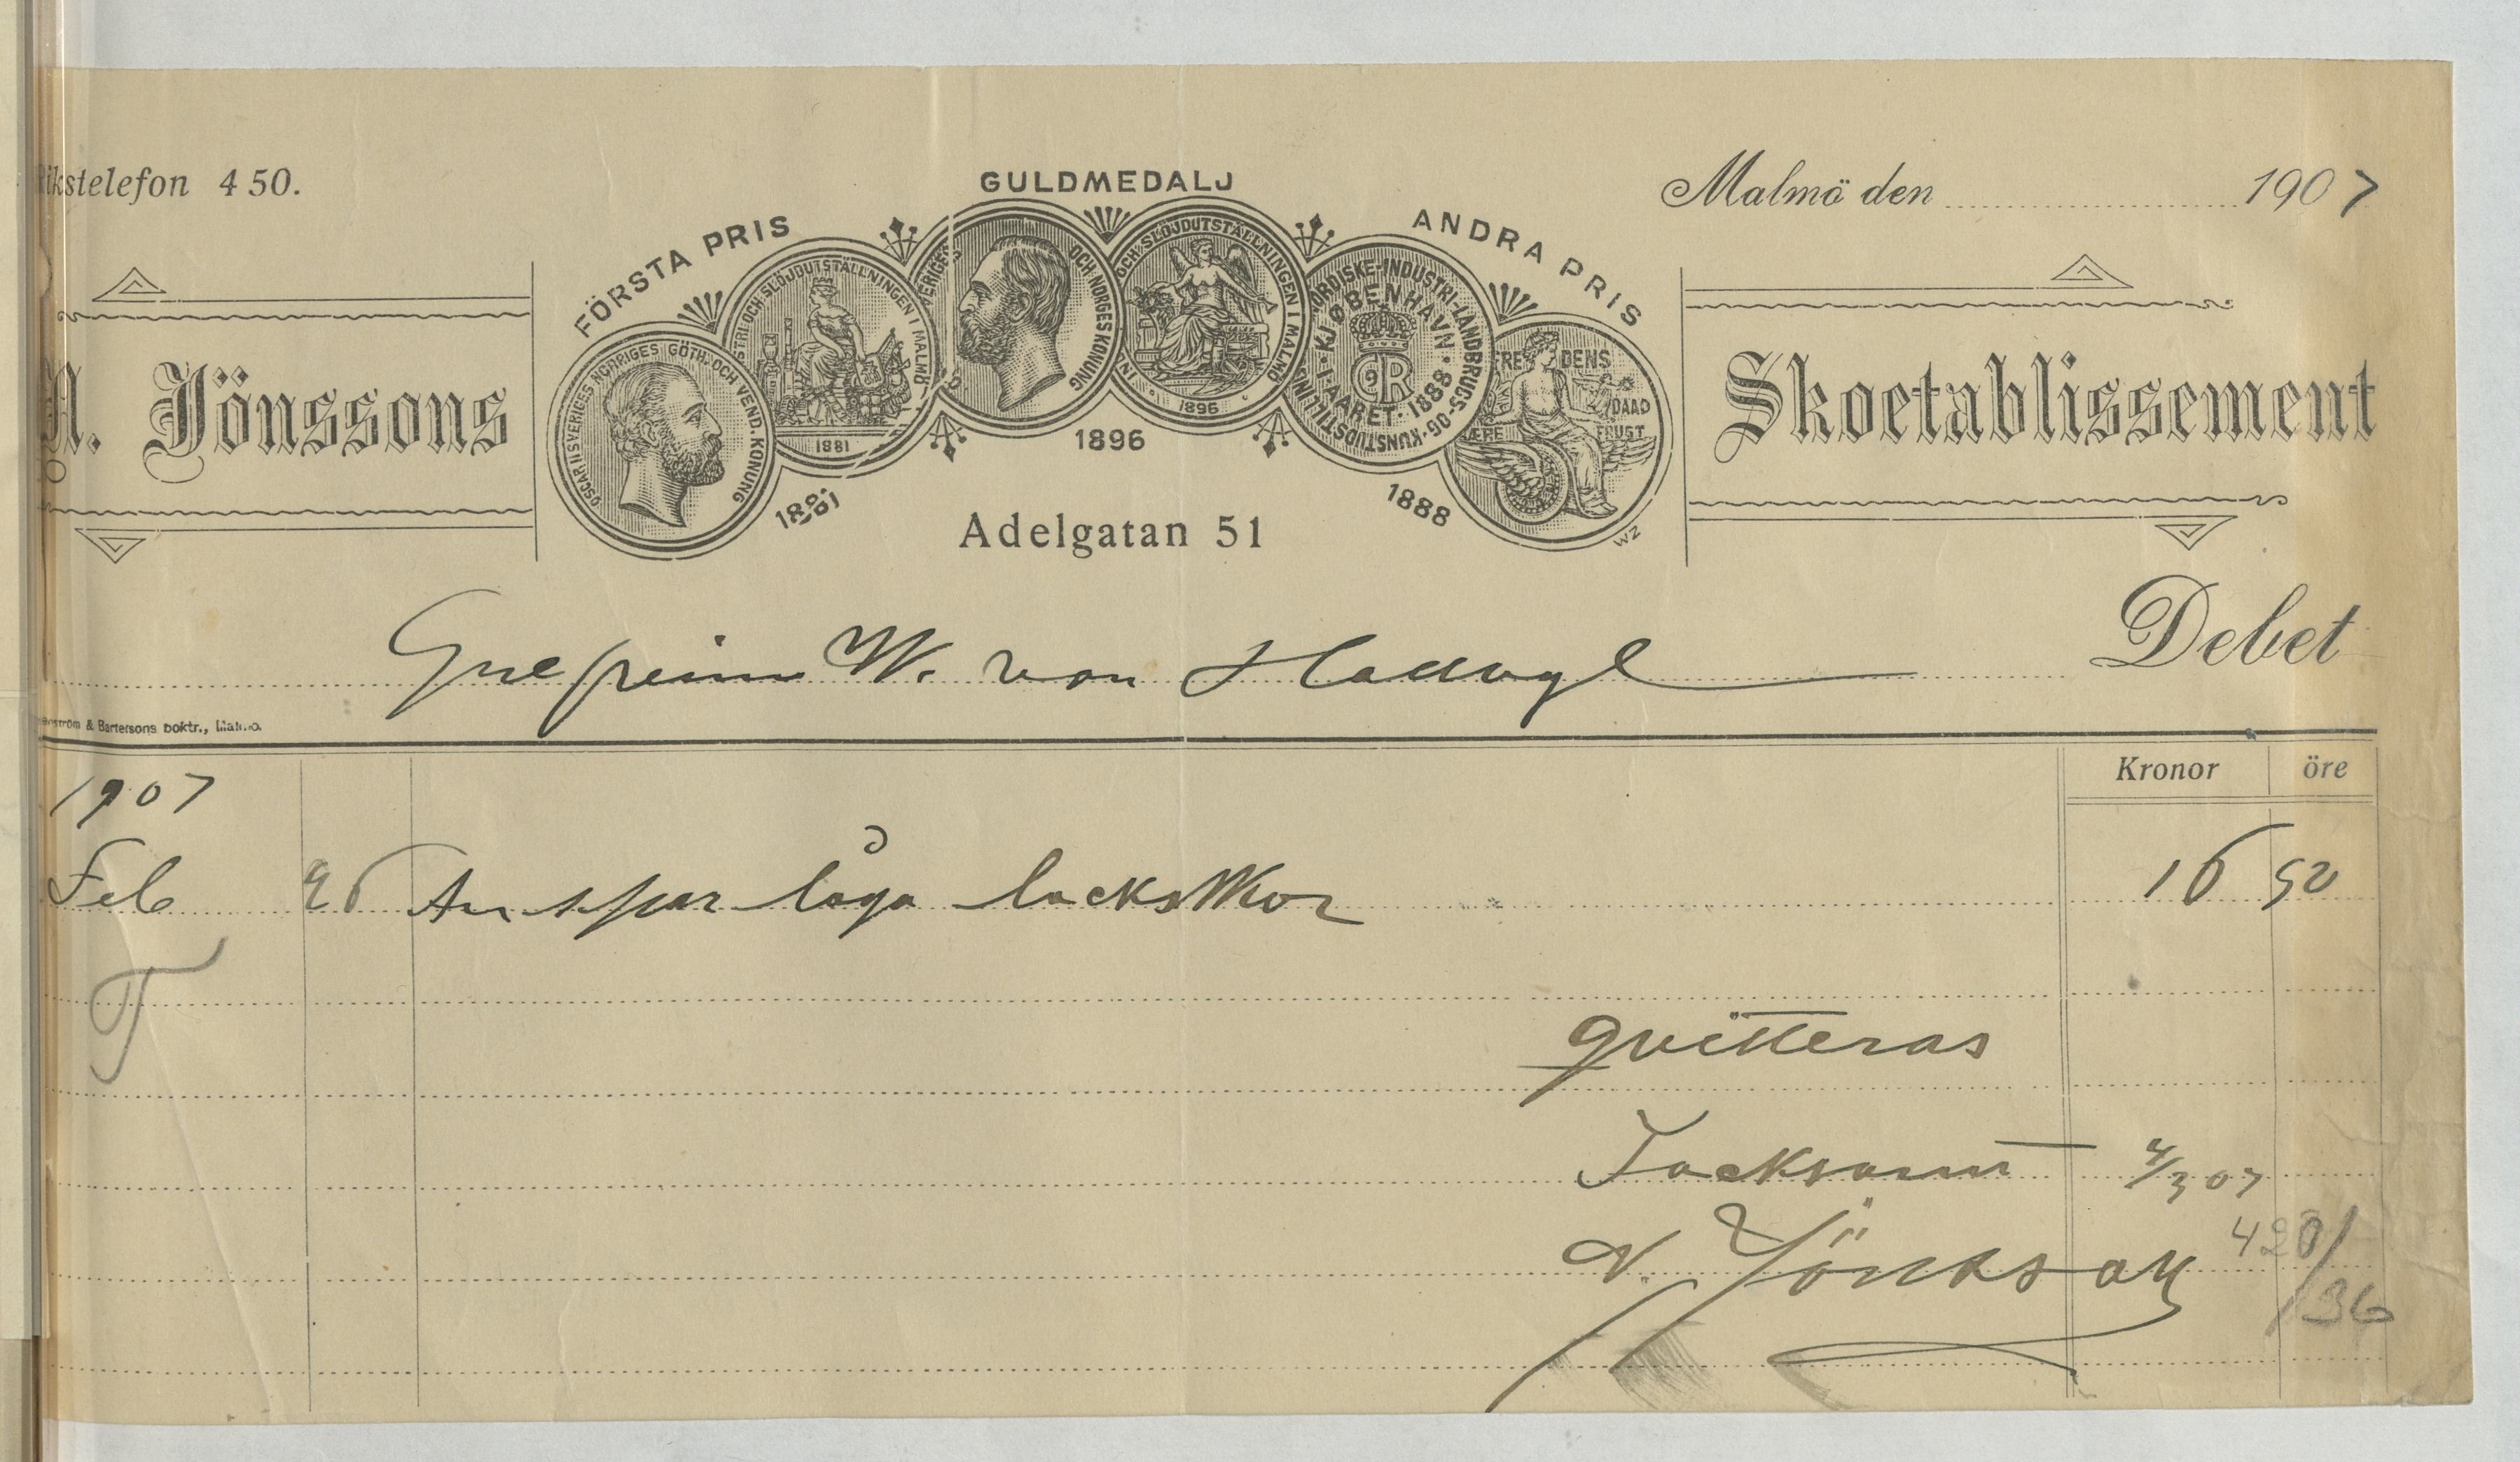 Rikstelefon 450.
GULDMEDALJ
Malmö den 1907
FÖRSTA PRIS
ANDRA PRIS
N. Jönssons
Skoetablissement
OSCAR II SVERIGES NORRIGES GÖTH. OCH VEND. KONUNG
INDUSTRI-OCH SLÖJDUTSTÄLLNINGEN I MALMÖ
1881
SVERIGES OCH NORGES KONUNG
OCH SLÖJDUTSTÄLLNINGEN I MALMÖ
1896
NORDISKE-INDUSTRI-LANDBRUGS-OG-KUNSTUDSTILLING
KJØBENHAVN
I-AARET-1888
FREDENS DAAD
ÆRE FRUST
1881
1896
1888
WZ
Adelgatan 51
Grefvinn W. von Hallwyl
Debet
& Bartelsons boktr., Malmö.
Kronor öre
1907
Feb 26 An 1 par låga lackskor 16 50
T
qvitteras
Tacksamt 4/3 07
N. Jönsson
420/36